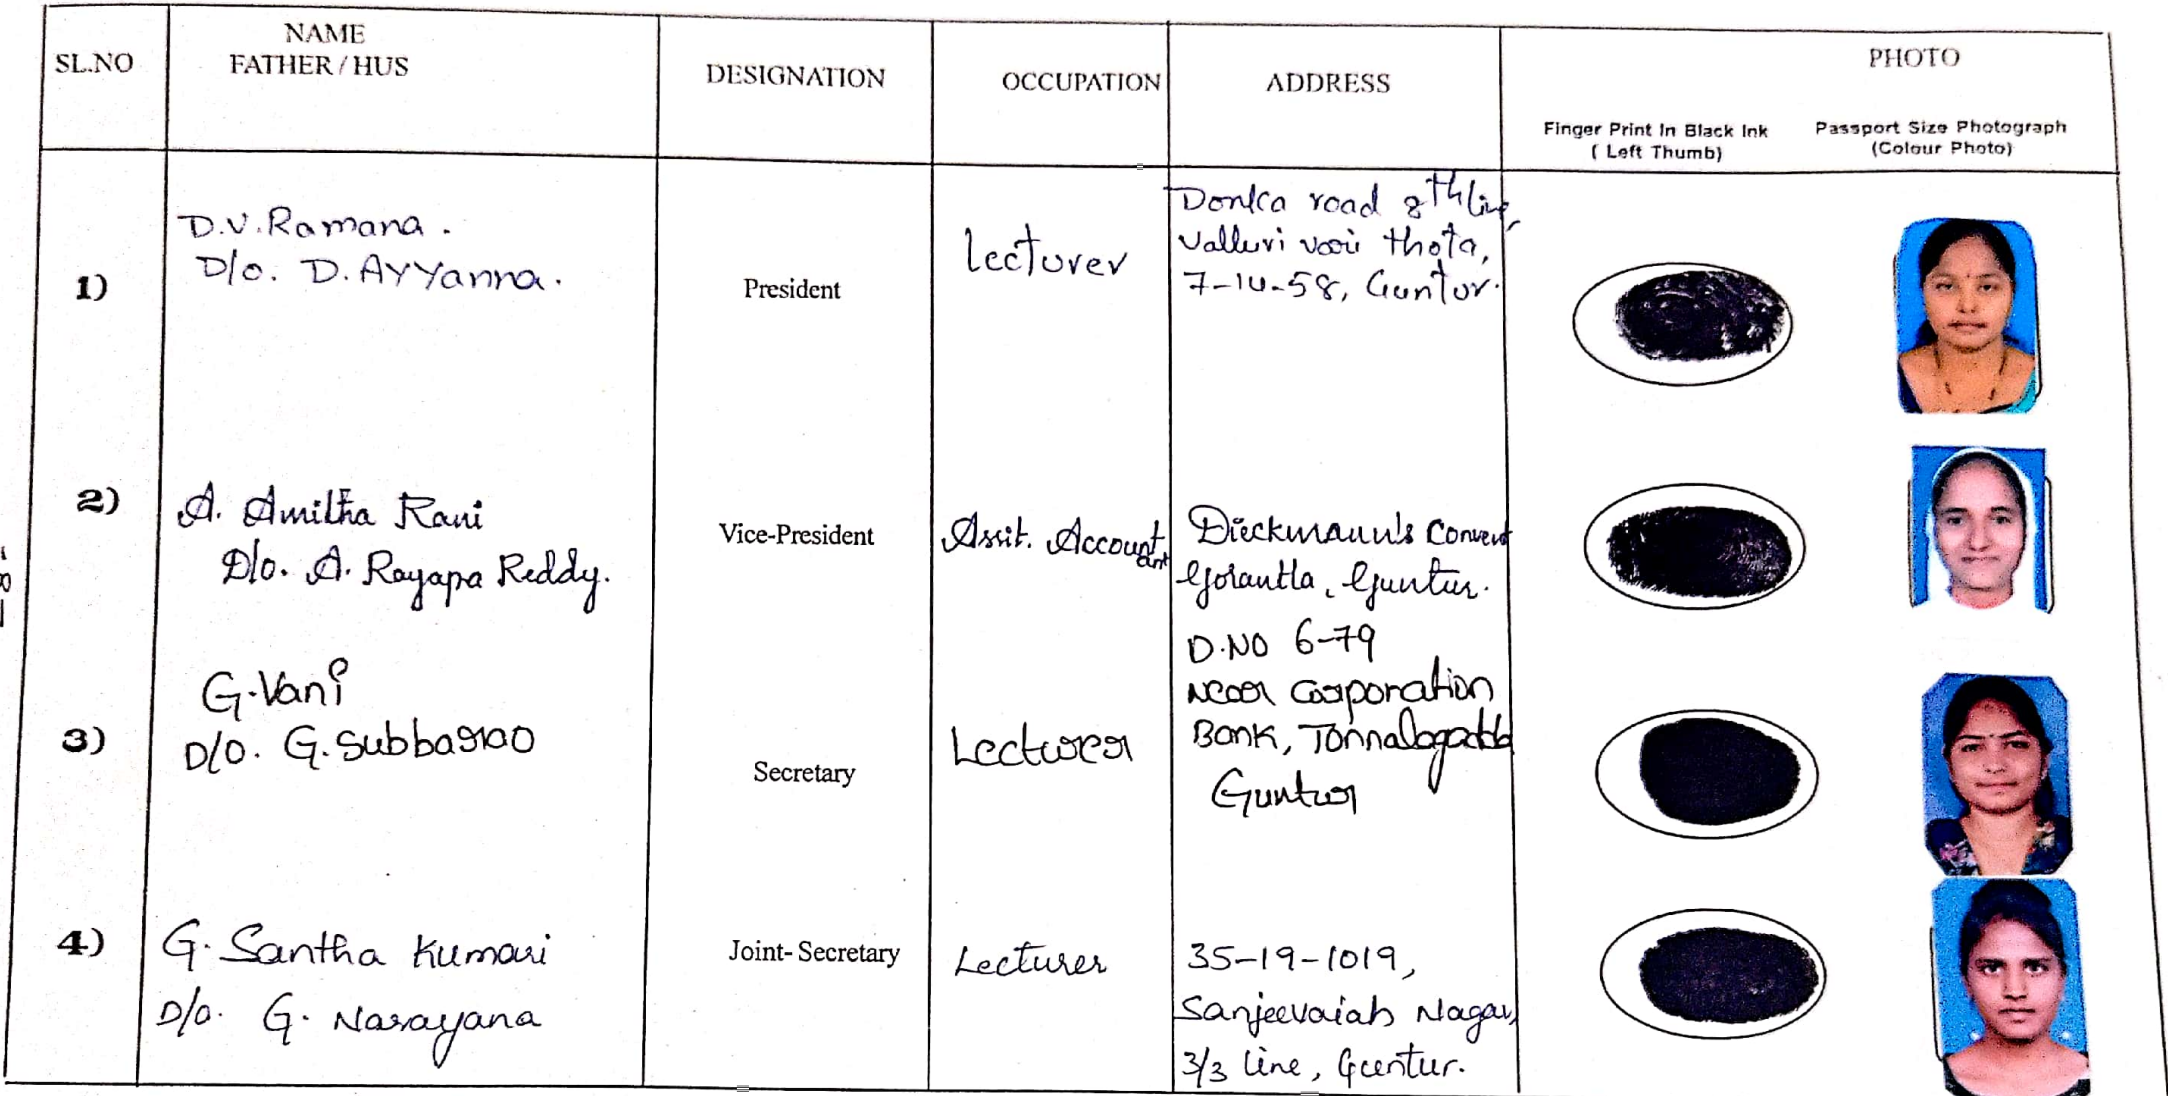 SL.NO
NAME
FATHER / HUS
DESIGNATION
OCCUPATION
ADDRESS
PHOTO
Finger Print In Black Ink
( Left Thumb)
Passport Size Photograph
(Colour Photo)
1)
D.V.Ramana.
D/o. D.AYYanna.
President
Lecturer
Donka road 8th line,
Valluri vari thota,
7-14-58, Guntur.
2)
A. Amitha Rani
D/o. A. Rayapa Reddy.
Vice-President
Assit. Accountant
Dieckmann's Convent
Gorantla, Guntur.
3)
G.Vani
D/O. G.Subbarao
Secretary
Lecturer
D.NO 6-79
Near Corporation
Bank,
Guntur
4)
G. Santha Kumari
D/o. G. Narayana
Joint- Secretary
Lecturer
35-19-1019,
Sanjeevaiah Nagar,
3/3 line, Guntur.